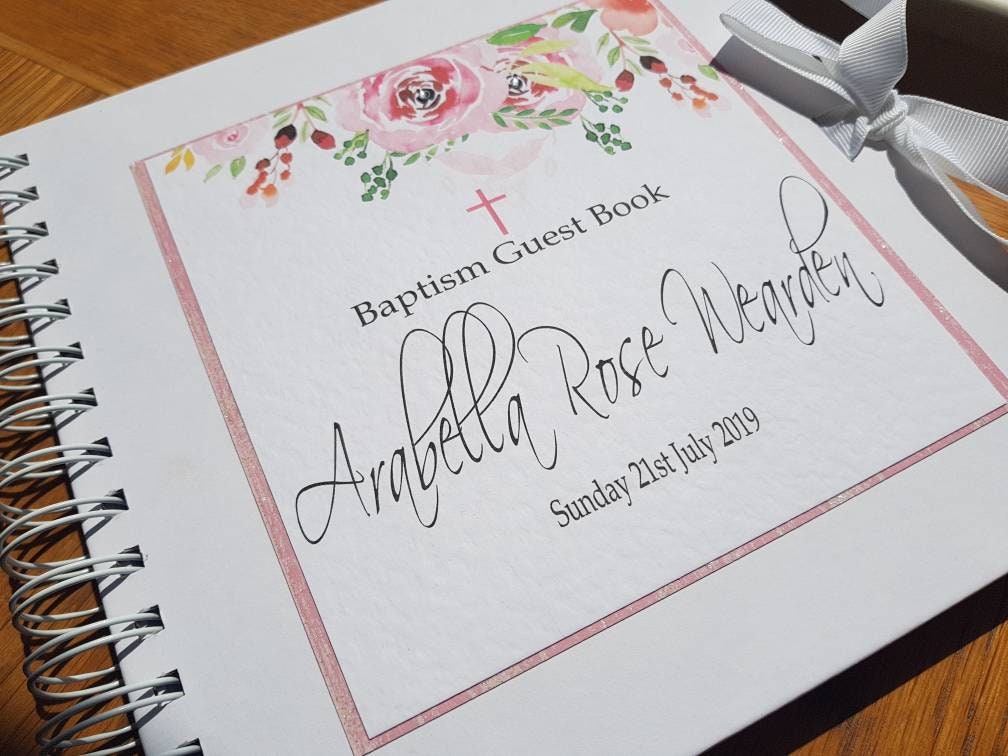 Baptism Guest Book
Arabella Rose Wearden
Sunday 21st July 2019